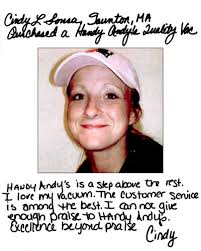 Cindy L Sousa, Taunton, MA
Purchased a Handy Andy's Quality Vac
Handy Andy's is a step above the rest.
I love my vacuum. The customer service
is among the best. I can not give
enough praise to Handy Andys.
Excellence beyond praise
Cindy